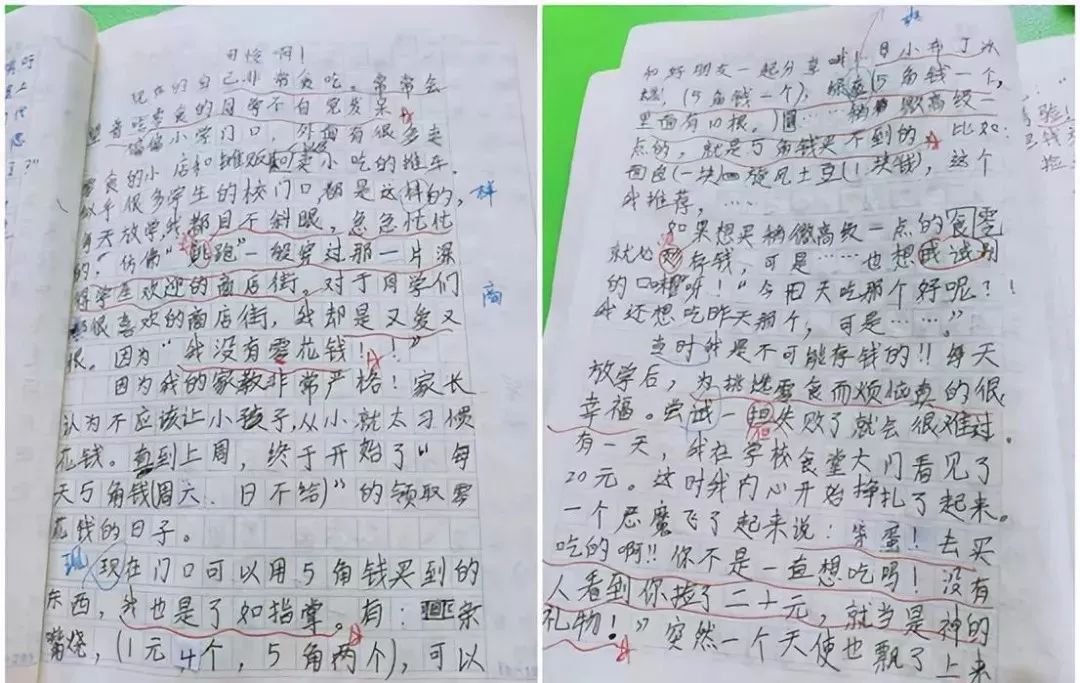 可怜啊！
现在的自己非常贪吃。常常会
看着吃零食的同学不自觉发呆
小学门口，外面有很多卖
零食的小店和摊贩卖小吃的推车。
似乎很多学生的校门口，都是这样的，样
每天放学，我都目不斜眼，急急忙忙
的，仿佛“跳跑”一般穿过那一片深
得学生欢迎的商店街。对于同学们
很喜欢的商店街，我却是又爱又 商
恨。因为“我没有零花钱！！”
因为我的家教非常严格！家长
认为不应该让小孩子，从小就太习惯
花钱。直到上周，终于开始了“每
天5角钱（周六、日不给）”的领取零
花钱的日子。
现 现在门口可以用5角钱买到的
东西，我也是了如指掌。有：
嘴烧，（1元4个，5角两个），可以
和好朋友一起分享 小布丁冰
（5角钱一个），（5角钱一个，
里面有10根。）……稍微高级一
点的，就是5角钱买不到的。比如：
面包（一块）旋风土豆（1块钱），这个
我推荐，……
如果想买稍微高级一点的食零
就必须存钱，可是……也想试试别
的口味呀！“今天吃那个好呢？！
我还想吃昨天那个，可是……。”
当时我是不可能存钱的！！每天
放学后，为挑选零食而烦恼真的很
幸福。尝试一但失败了就会很难过。
但
有一天，我在学校食堂大门看见了
20元。这时我内心开始挣扎了起来。
一个恶魔飞了起来说：笨蛋！去买
吃的啊！！你不是一直想吃吗！没有
人看到你捡了二十元，就当是神的
礼物！”突然一个天使也飘了上来